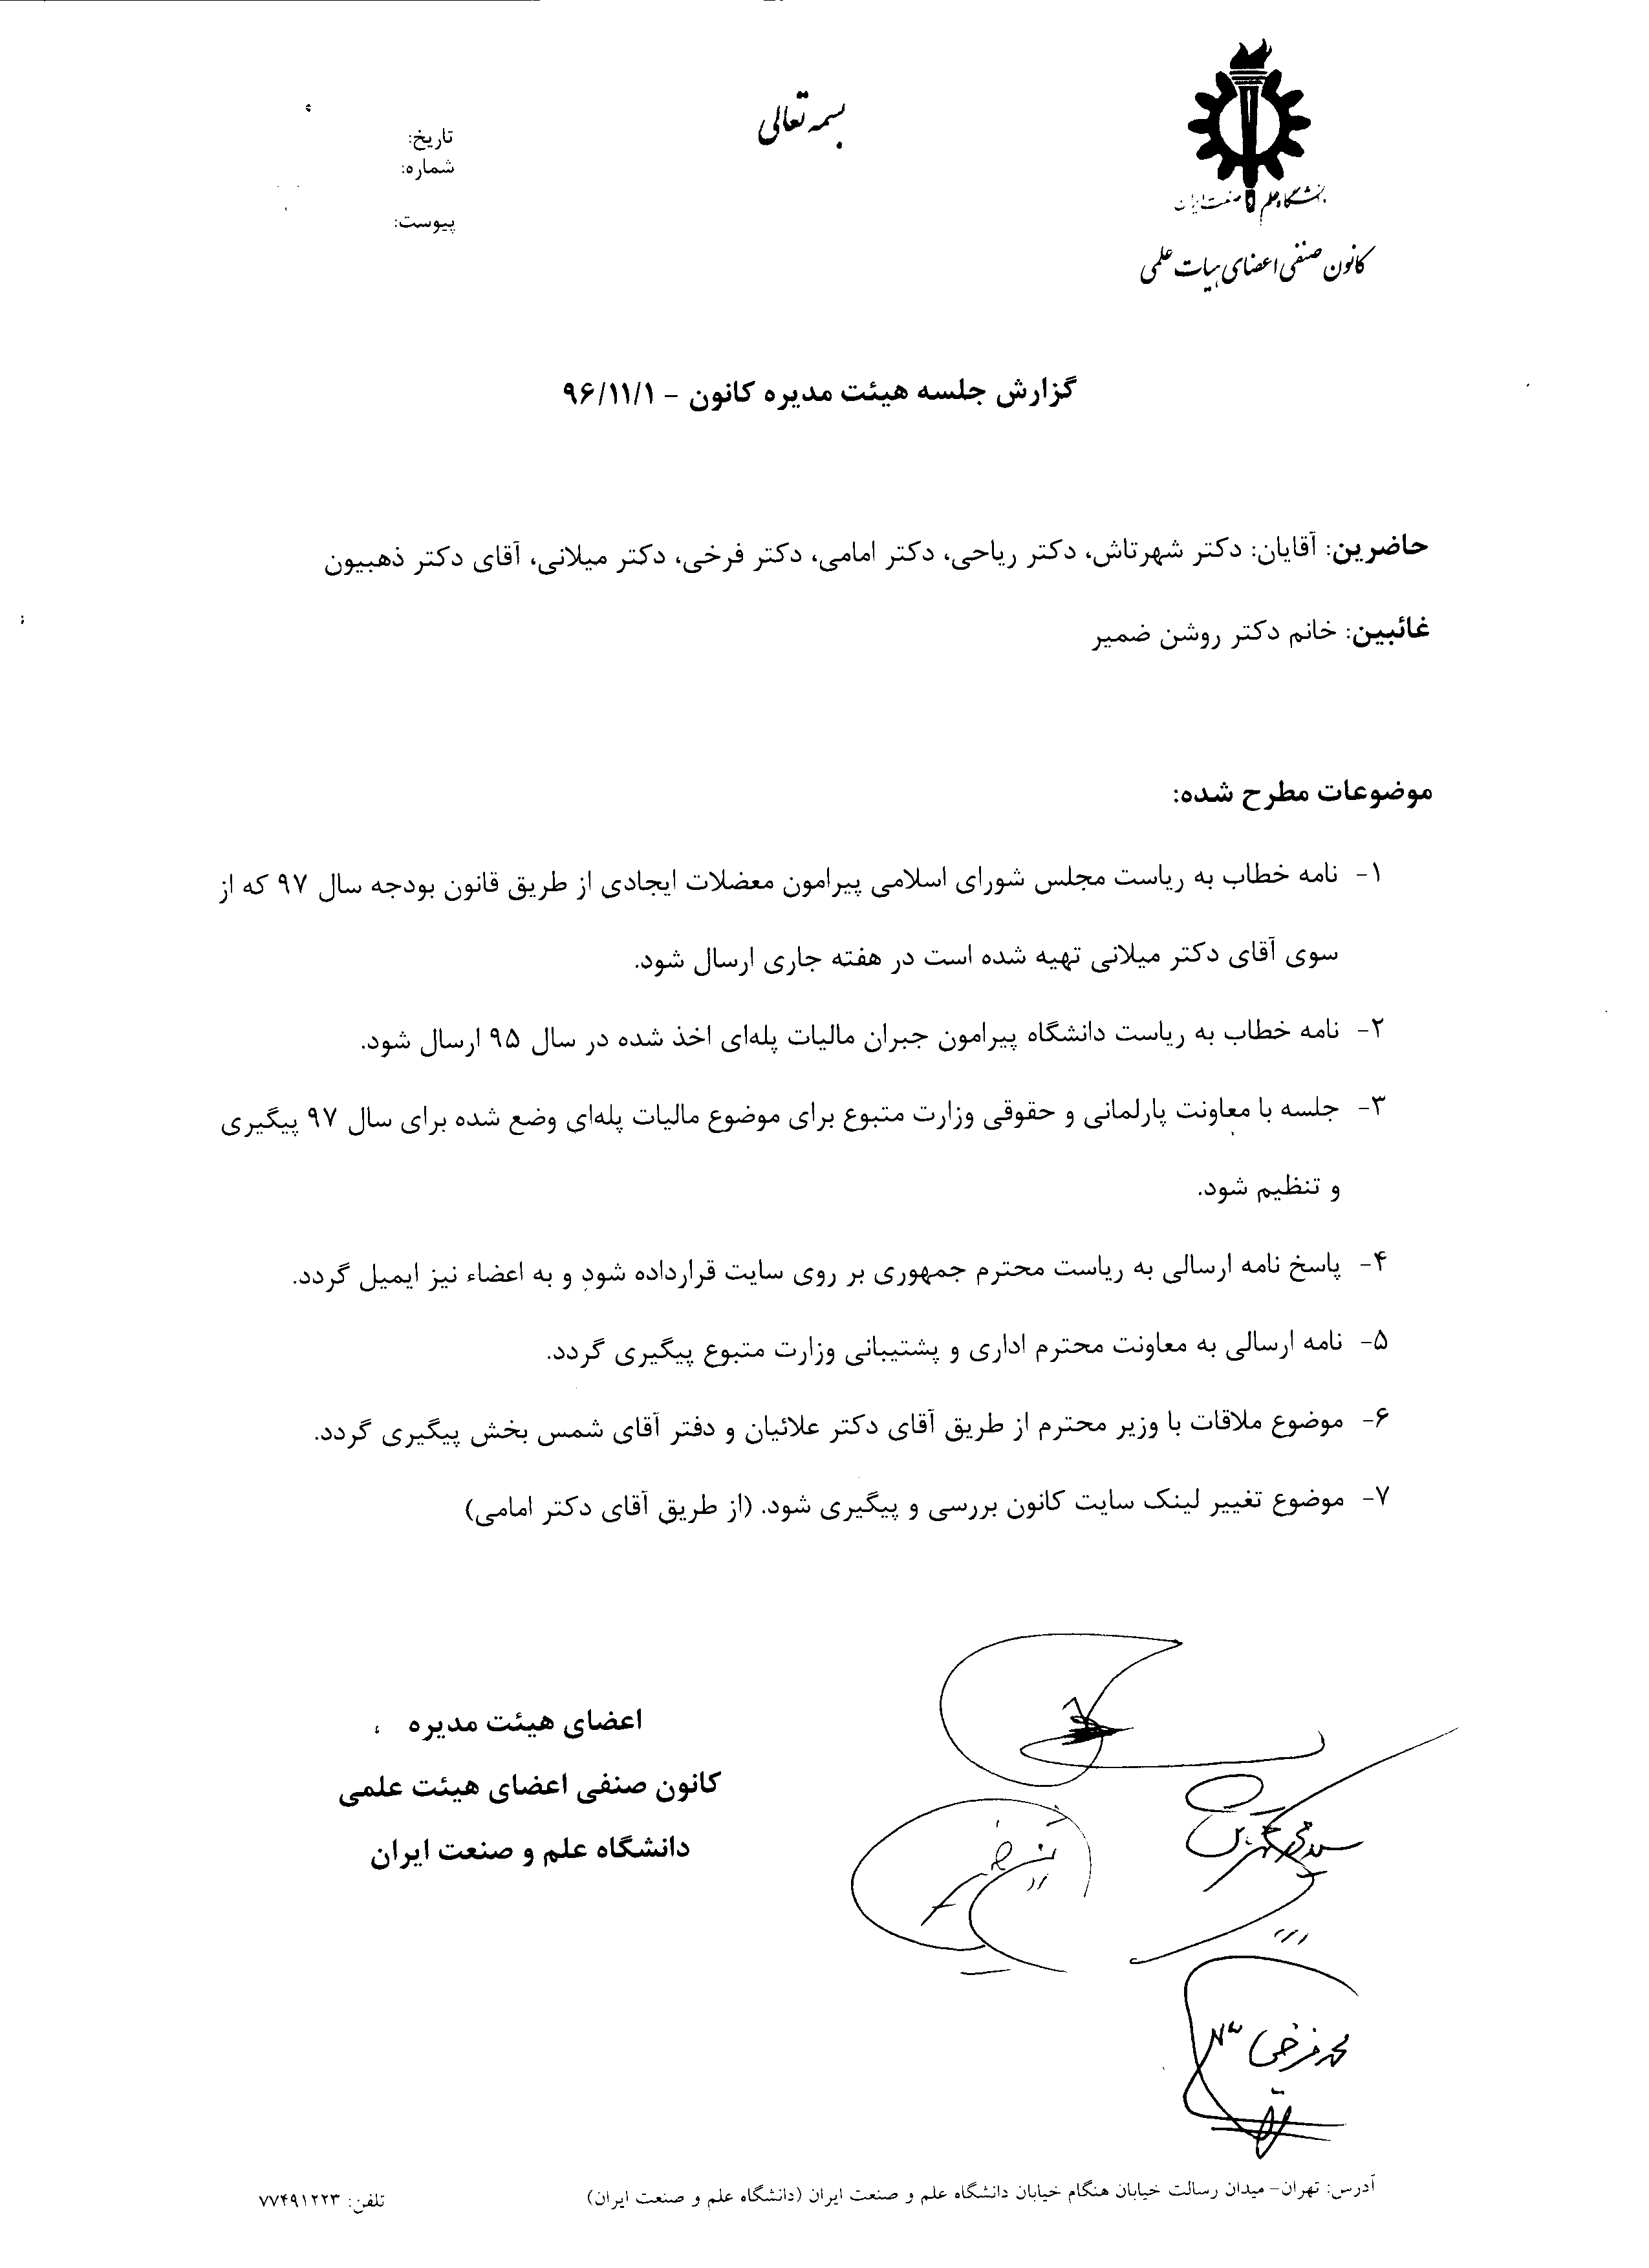 بسمه تعالی
دانشگاه علم و صنعت ایران
کانون صنفی اعضای هیات علمی
تاریخ:
شماره:
پیوست:
گزارش جلسه هیئت مدیره کانون – ۹۶/۱۱/۱
حاضرین: آقایان: دکتر شهرتاش، دکتر ریاحی، دکتر امامی، دکتر فرخی، دکتر میلانی، آقای دکتر ذهبیون
غائبین: خانم دکتر روشن ضمیر
موضوعات مطرح شده:
۱- نامه خطاب به ریاست مجلس شورای اسلامی پیرامون معضلات ایجادی از طریق قانون بودجه سال ۹۷ که از
سوی آقای دکتر میلانی تهیه شده است در هفته جاری ارسال شود.
۲- نامه خطاب به ریاست دانشگاه پیرامون جبران مالیات پله‌ای اخذ شده در سال ۹۵ ارسال شود.
۳- جلسه با معاونت پارلمانی و حقوقی وزارت متبوع برای موضوع مالیات پله‌ای وضع شده برای سال ۹۷ پیگیری
و تنظیم شود.
۴- پاسخ نامه ارسالی به ریاست محترم جمهوری بر روی سایت قرارداده شود و به اعضاء نیز ایمیل گردد.
۵- نامه ارسالی به معاونت محترم اداری و پشتیبانی وزارت متبوع پیگیری گردد.
۶- موضوع ملاقات با وزیر محترم از طریق آقای دکتر علائیان و دفتر آقای شمس بخش پیگیری گردد.
۷- موضوع تغییر لینک سایت کانون بررسی و پیگیری شود. (از طریق آقای دکتر امامی)
اعضای هیئت مدیره
کانون صنفی اعضای هیئت علمی
دانشگاه علم و صنعت ایران
محمد فرخی
آدرس: تهران- میدان رسالت خیابان هنگام خیابان دانشگاه علم و صنعت ایران (دانشگاه علم و صنعت ایران)
تلفن: ۷۷۴۹۱۲۲۳